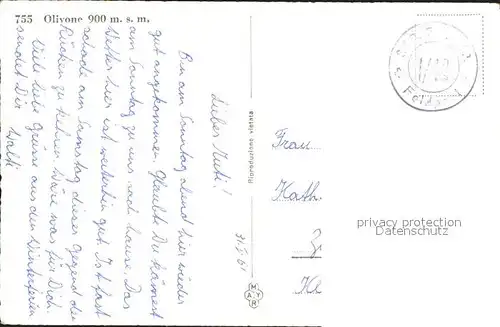 755 Olivone 900 m. s. m.
Liebes Muti!
Bin am Sonntag abend hier wieder
gut angekommen. Glaubt Du kämest
am Sonntag zu uns nach Hause. Das
Wetter hier ist weiterhin gut. Ist fast
schade am Samstag dieser Gegend den
Rücken zu kehren. Wäre was für Dich.
Viele liebe Grüsse aus den Winterferien
sendet Dir Walti
Riproduzione vietata
MAYR
Feldpost
Frau
Kath.
privacy protection
www.ansichtskartenversand.com